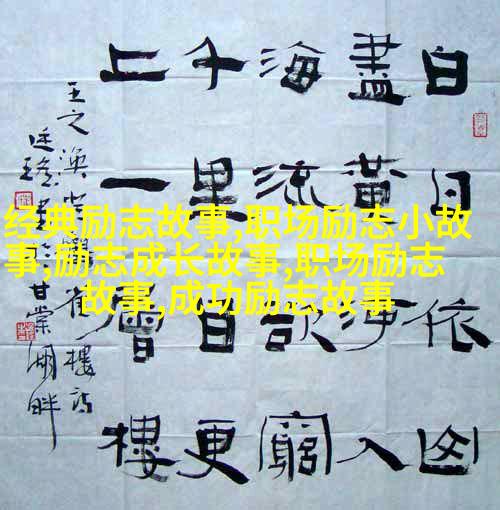 经典励志故事,职场励志小故
事,励志成长故事,职场励志
故事,成功励志故事
白日依山
盡黃河入
海流欲窮
千里目更
上一層樓
王之渙登鸛雀樓詩
甘棠湖畔